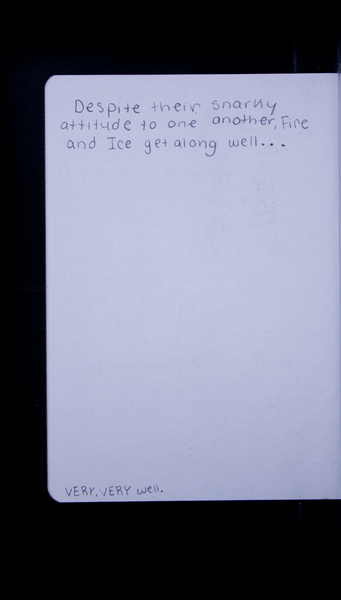 Despite their snarky
attitude to one another, Fire
and Ice get along well...
VERY, VERY well.